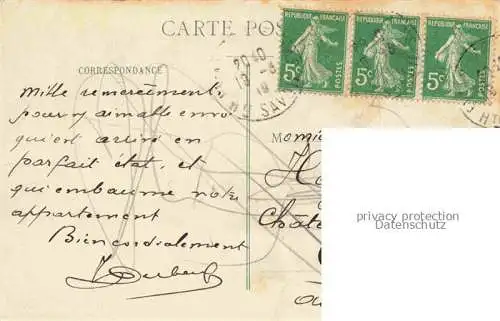 CARTE POS
RÉPUBLIQUE FRANÇAISE
5c POSTES
RÉPUBLIQUE FRANÇAISE
5c POSTES
RÉPUBLIQUE FRANÇAISE
5c POSTES
20 40
Hte SAV
CORRESPONDANCE
Mille remerciements
pour
aimable envoi
qui est arrivé en
parfait état, et
qui embaume notre
appartement
Bien cordialement
M
Hô
Châte
privacy protection
Datenschutz